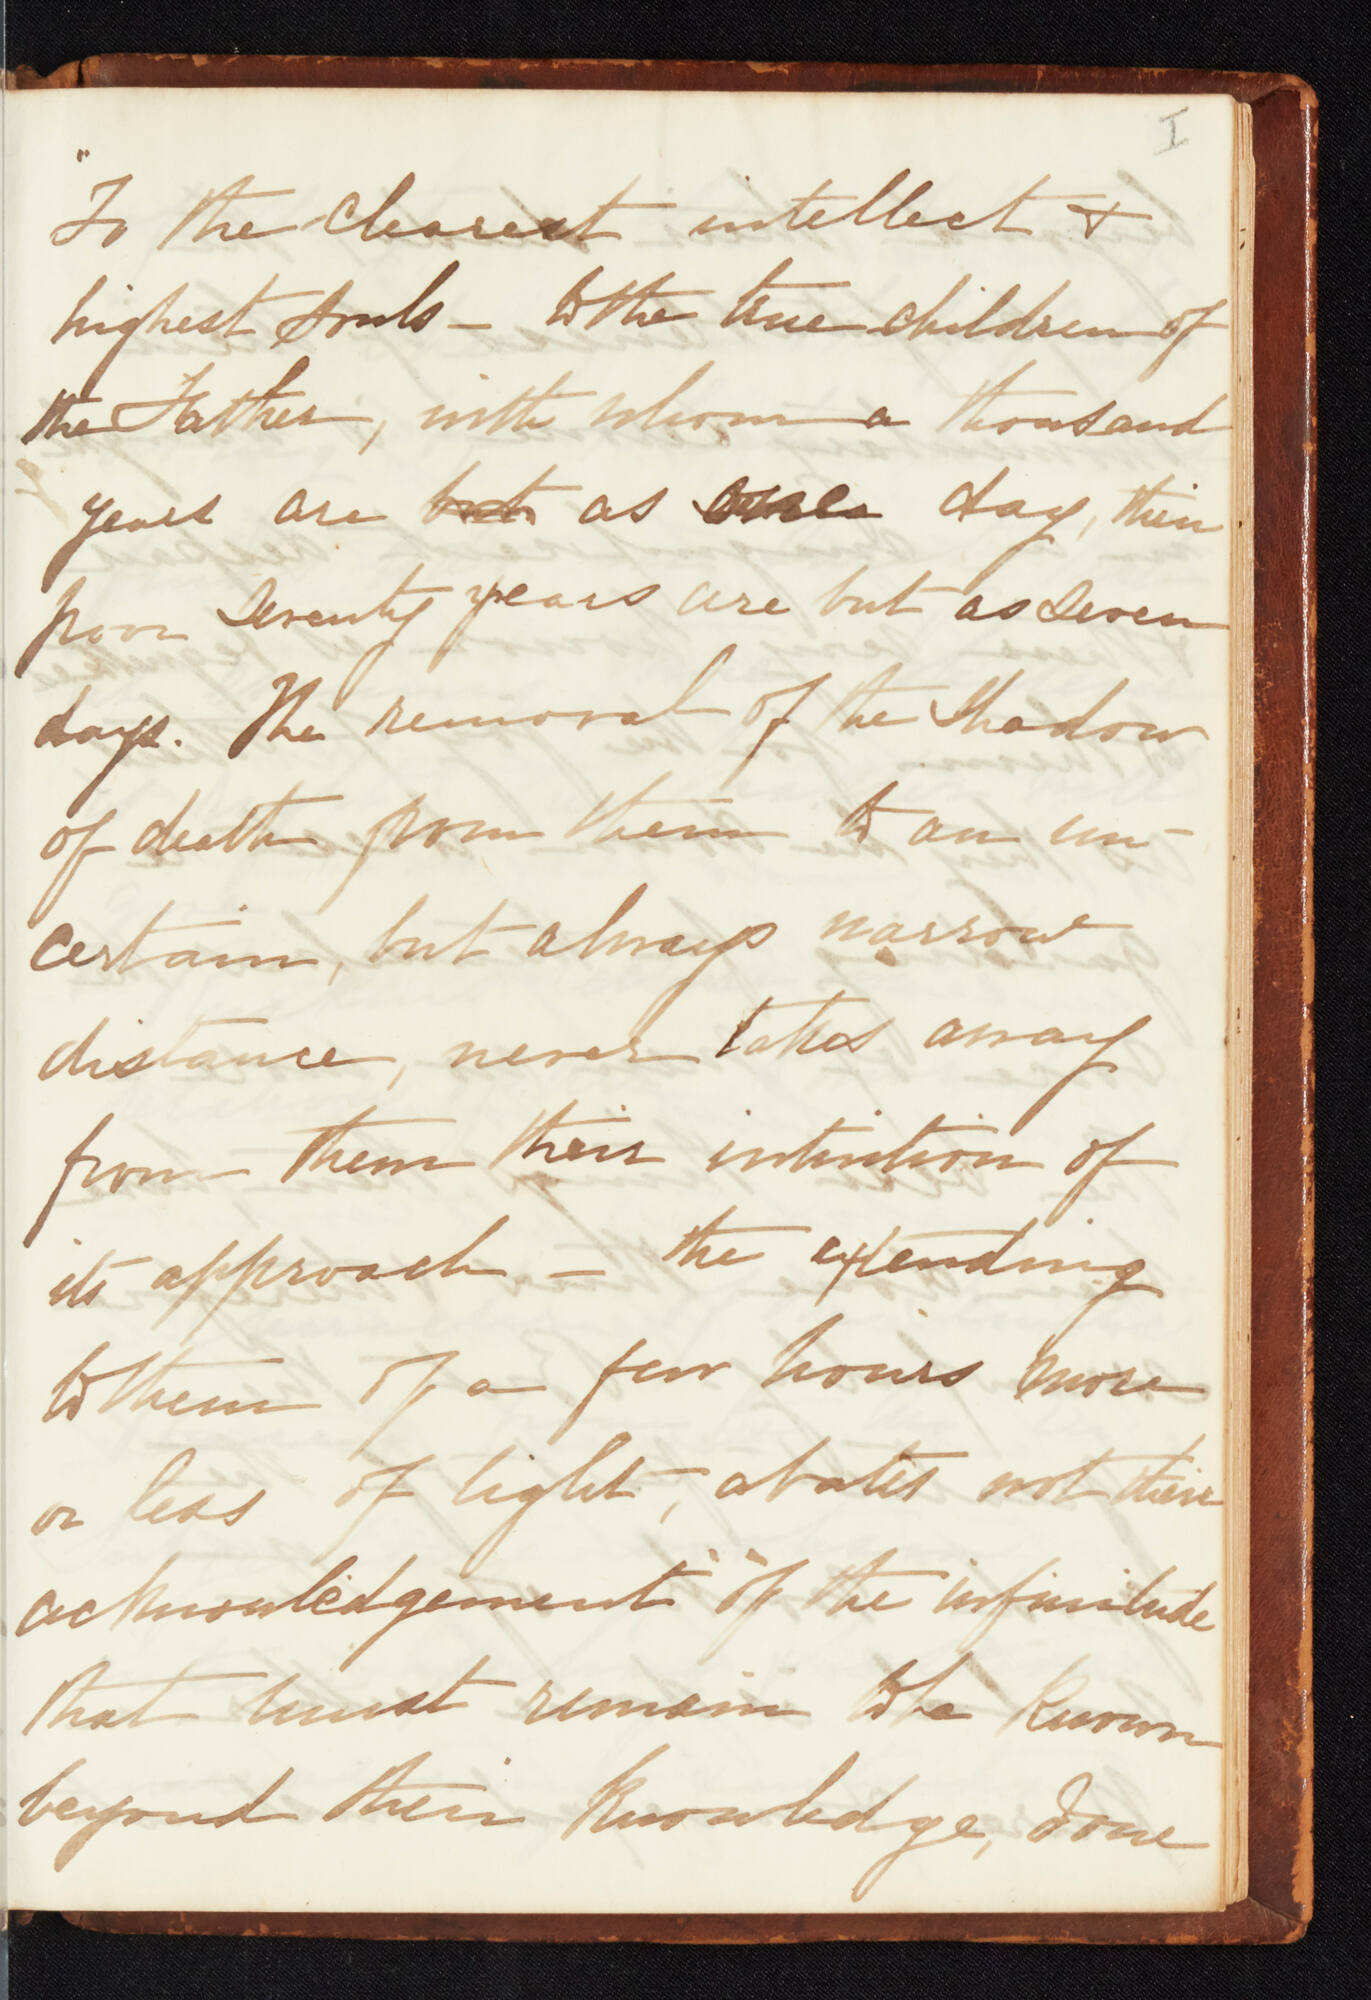 I
"To the clearest intellect &
highest souls – to the true children of
the Father, with whom a thousand
years are but as one day, their
poor seventy years are but as seven
days. The removal of the shadow
of death from them to an un-
certain, but always narrow
distance, never takes away
from them their intuition of
its approach – the extending
to them of a few hours more
or less of light, abates not their
acknowledgement of the infinitude
that must remain to be known
beyond their knowledge, done